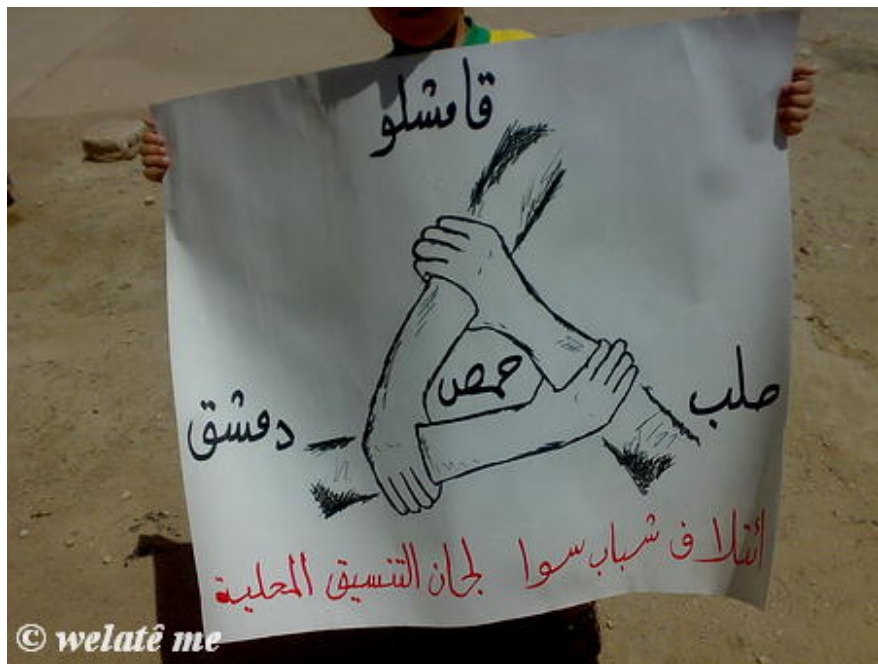 قامشلو
حمص
حلب
دمشق
ائتلاف شباب سوا لجان التنسيق المحلية
© welatê me